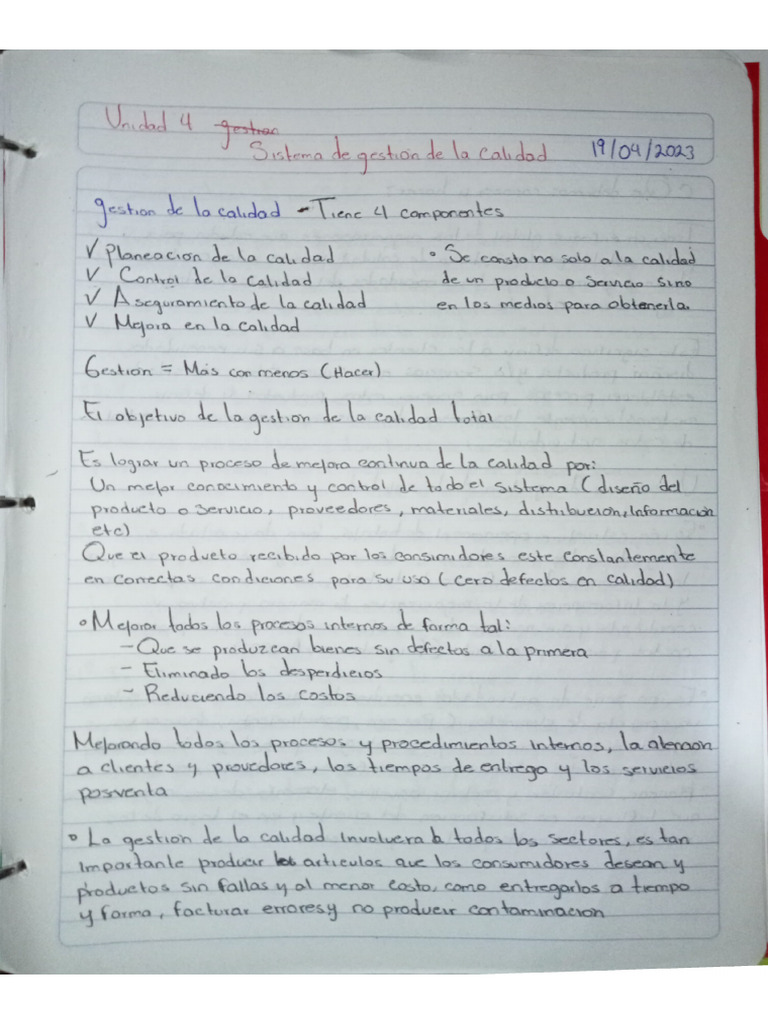 Unidad 4 gestion
Sistema de gestión de la calidad 19/04/2023
gestion de la calidad - Tiene 4 componentes
✓ Planeacion de la calidad
✓ Control de la calidad
✓ Aseguramiento de la calidad
✓ Mejora en la calidad
• Se consta no solo a la calidad
de un producto o servicio sino
en los medios para obtenerla.
Gestion = Más con menos (Hacer)
El objetivo de la gestion de la calidad total
Es lograr un proceso de mejora continua de la calidad por:
Un mejor conocimiento y control de todo el sistema (diseño del
producto o servicio, proveedores, materiales, distribucion, Informacion
etc)
Que el producto recibido por los consumidores este constantemente
en correctas condiciones para su uso (cero defectos en calidad)
• Mejorar todos los procesos internos de forma tal:
- Que se produzcan bienes sin defectos a la primera
- Eliminado los desperdicios
- Reduciendo los costos
Mejorando todos los procesos y procedimientos internos, la atencion
a clientes y provedores, los tiempos de entrega y los servicios
posventa
• La gestion de la calidad involucra a todos los sectores, es tan
importante producir los articulos que los consumidores desean y
productos sin fallas y al menor costo, como entregarlos a tiempo
y forma, facturar errores y no producir contaminacion